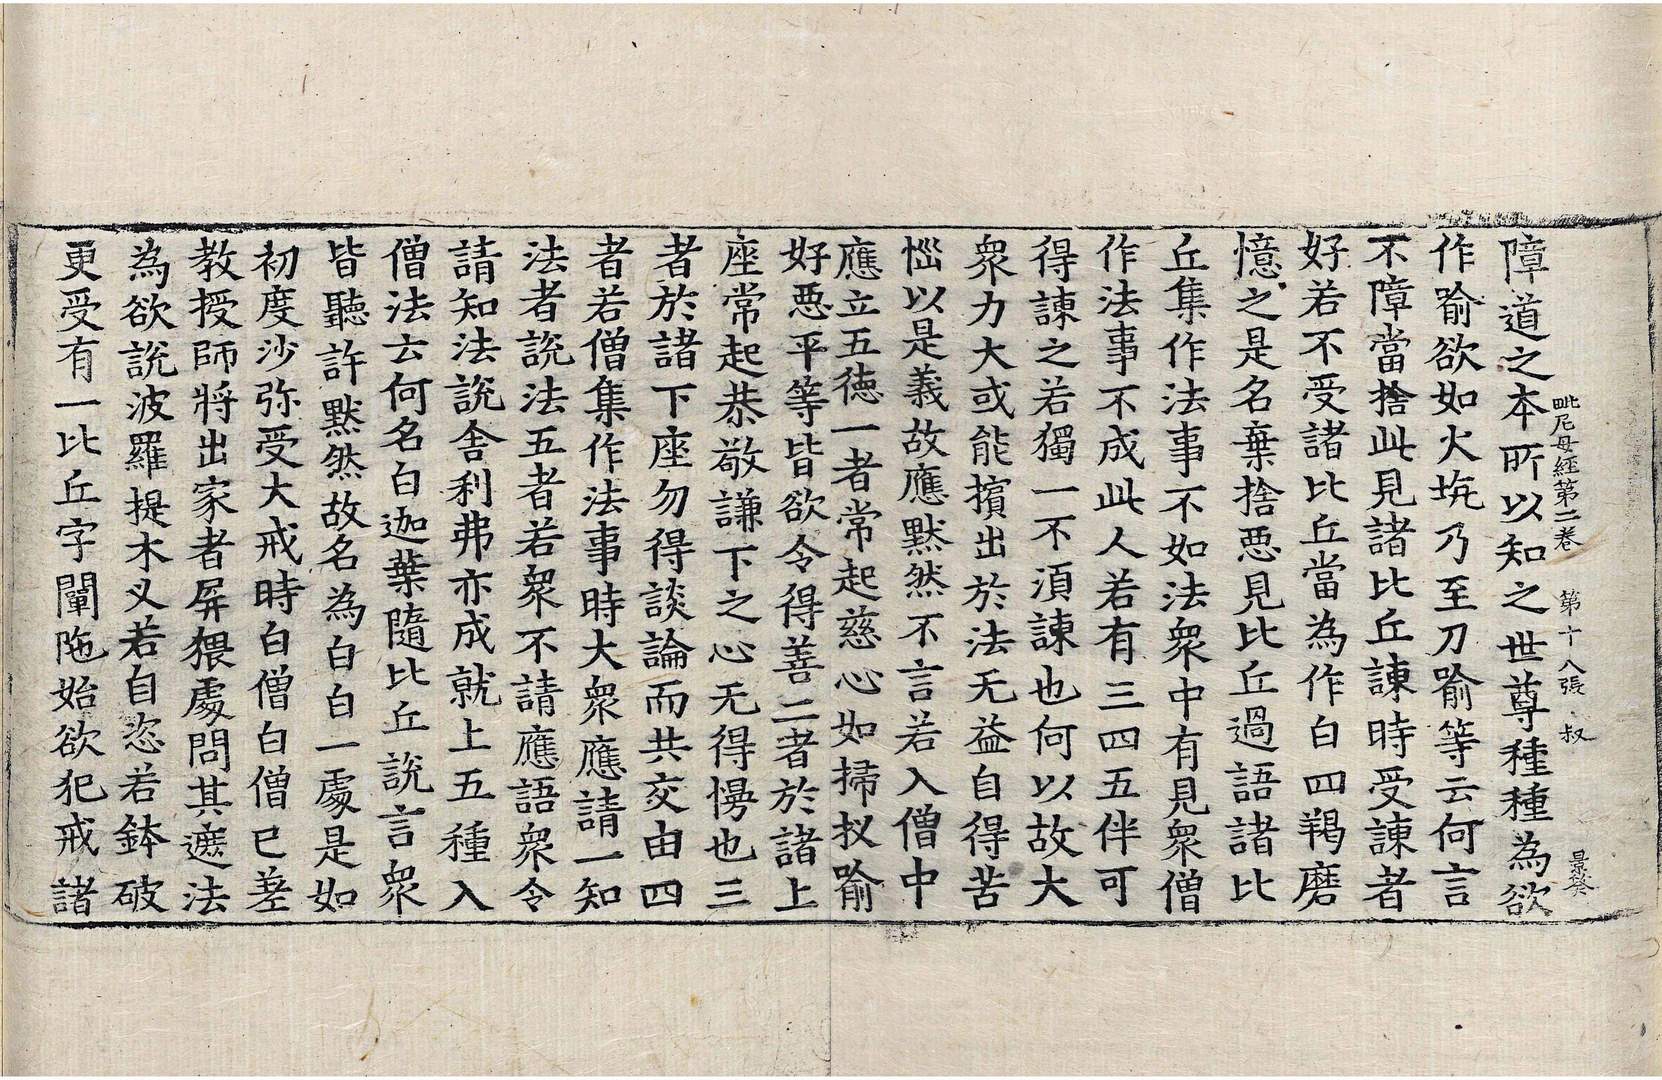 毗尼母經第二卷 第十八張 叔 景癸
障道之本所以知之世尊種種為欲
作喻欲如火坑乃至刀喻等云何言
不障當捨此見諸比丘諫時受諫者
好若不受諸比丘當為作白四羯磨
憶之是名棄捨惡見比丘過語諸比
丘集作法事不如法眾中有見眾僧
作法事不成此人若有三四五伴可
得諫之若獨一不湏諫也何以故大
眾力大或能擯出於法无益自得苦
惱以是義故應默然不言若入僧中
應立五德一者常起慈心如掃㧊喻
好惡平等皆欲令得善二者於諸上
座常起恭敬謙下之心无得慢也三
者於諸下座勿得談論而共交由四
者若僧集作法事時大眾應請一知
法者說法五者若眾不請應語眾令
請知法說舍利弗亦成就上五種入
僧法云何名白迦葉隨比丘說言眾
皆聽許默然故名為白白一處是如
初度沙弥受大戒時白僧白僧已差
教授師將出家者屏猥處問其遮法
為欲說波羅提木叉若自恣若鉢破
更受有一比丘字闡陁始欲犯戒諸